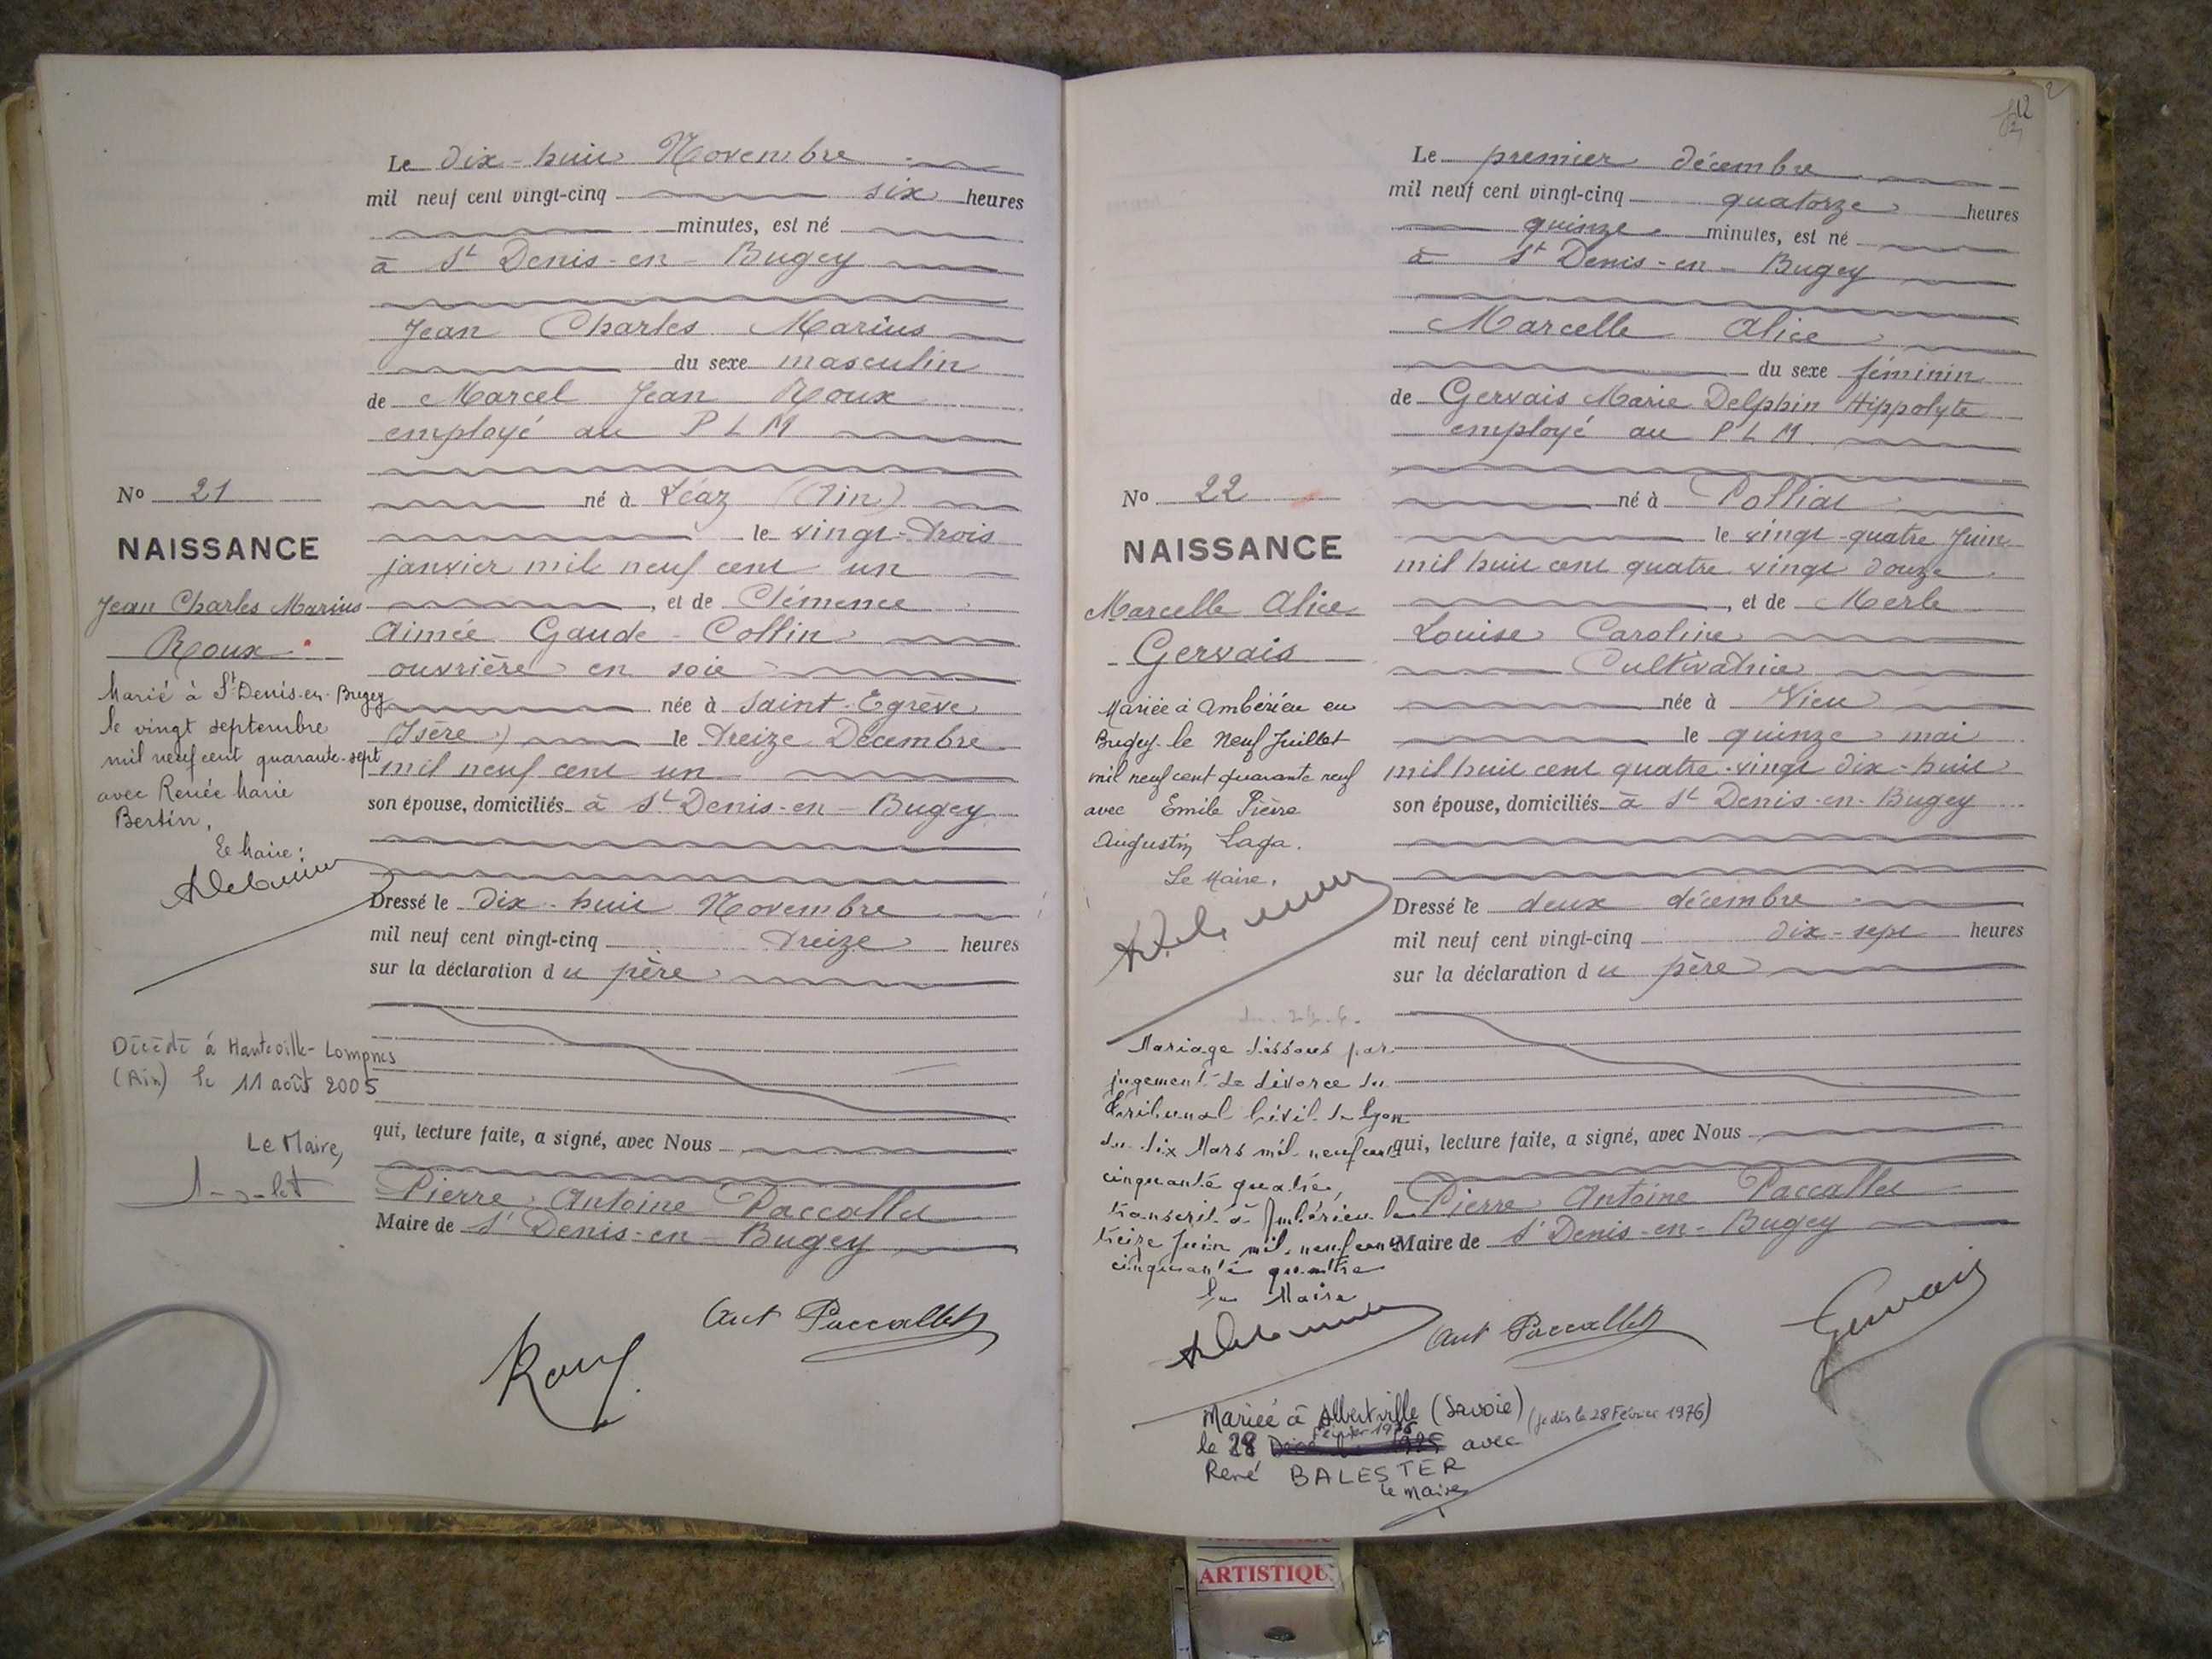 Le dix-huit Novembre
mil neuf cent vingt-cinq six heures
minutes, est né
à St Denis-en-Bugey
Jean Charles Marius
du sexe masculin
de Marcel Jean Roux
employé au P L M
né à Léaz (Ain)
le vingt-trois
janvier mil neuf cent un
, et de Clémence
Aimée Gaude-Collin
ouvrière en soie
née à Saint-Egrève
(Isère) le treize Décembre
mil neuf cent un
son épouse, domiciliés à St Denis-en-Bugey
Dressé le dix-huit Novembre
mil neuf cent vingt-cinq treize heures
sur la déclaration du père
qui, lecture faite, a signé, avec Nous
Pierre Antoine Paccallet
Maire de St Denis-en-Bugey
Roux
Ant Paccallet
No 21
NAISSANCE
Jean Charles Marius
Roux
Marié à St Denis-en-Bugey
le vingt septembre
mil neuf cent quarante-sept
avec Renée Marie
Bertin,
Le Maire:
Décédé à Hauteville-Lompnes
(Ain) le 11 août 2005
Le Maire,
Le premier décembre
mil neuf cent vingt-cinq quatorze heures
quinze minutes, est né
à St Denis-en-Bugey
Marcelle Alice
du sexe féminin
de Gervais Marie Delphin Hippolyte
employé au P L M
né à Polliat
le vingt-quatre Juin
mil huit cent quatre vingt douze
, et de Merle
Louise Caroline
Cultivatrice
née à Vieu
le quinze mai
mil huit cent quatre-vingt dix-huit
son épouse, domiciliés à St Denis-en-Bugey
Dressé le deux décembre
mil neuf cent vingt-cinq dix-sept heures
sur la déclaration du père
qui, lecture faite, a signé, avec Nous
Pierre Antoine Paccallet
Maire de St Denis-en-Bugey
Ant Paccallet
Gervais
No 22
NAISSANCE
Marcelle Alice
Gervais
Mariée à Ambérieu en
Bugey le Neuf Juillet
mil neuf cent quarante neuf
avec Emile Pierre
Augustin Laga.
Le Maire,
Mariage dissous par
jugement de divorce du
Tribunal Civil de Lyon
du dix Mars mil neuf cent
cinquante quatre,
transcrit à Ambérieu le
treize Juin mil neuf cent
cinquante quatre
Le Maire
Mariée à Albertville (Savoie) (je dis le 28 Février 1976)
Février 1976
le 28 avec
René BALESTER
Le Maire
ARTISTIQU